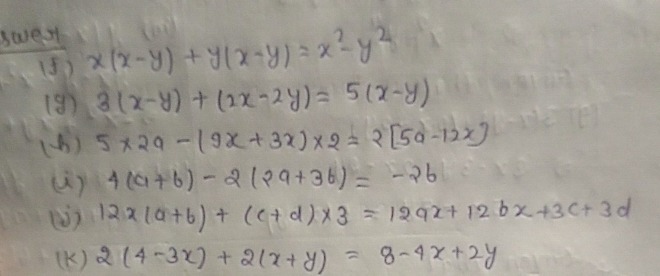 swer
(f) x(x-y) + y(x-y) = x² - y²
(g) 3(x-y) + (2x-2y) = 5(x-y)
(h) 5×2a - (9x+3x)×2 = 2[5a-12x]
(i) 4(a+b) - 2(2a+3b) = -2b
(j) 12x(a+b) + (c+d)×3 = 12ax+12bx+3c+3d
(k) 2(4-3x) + 2(x+y) = 8-4x+2y